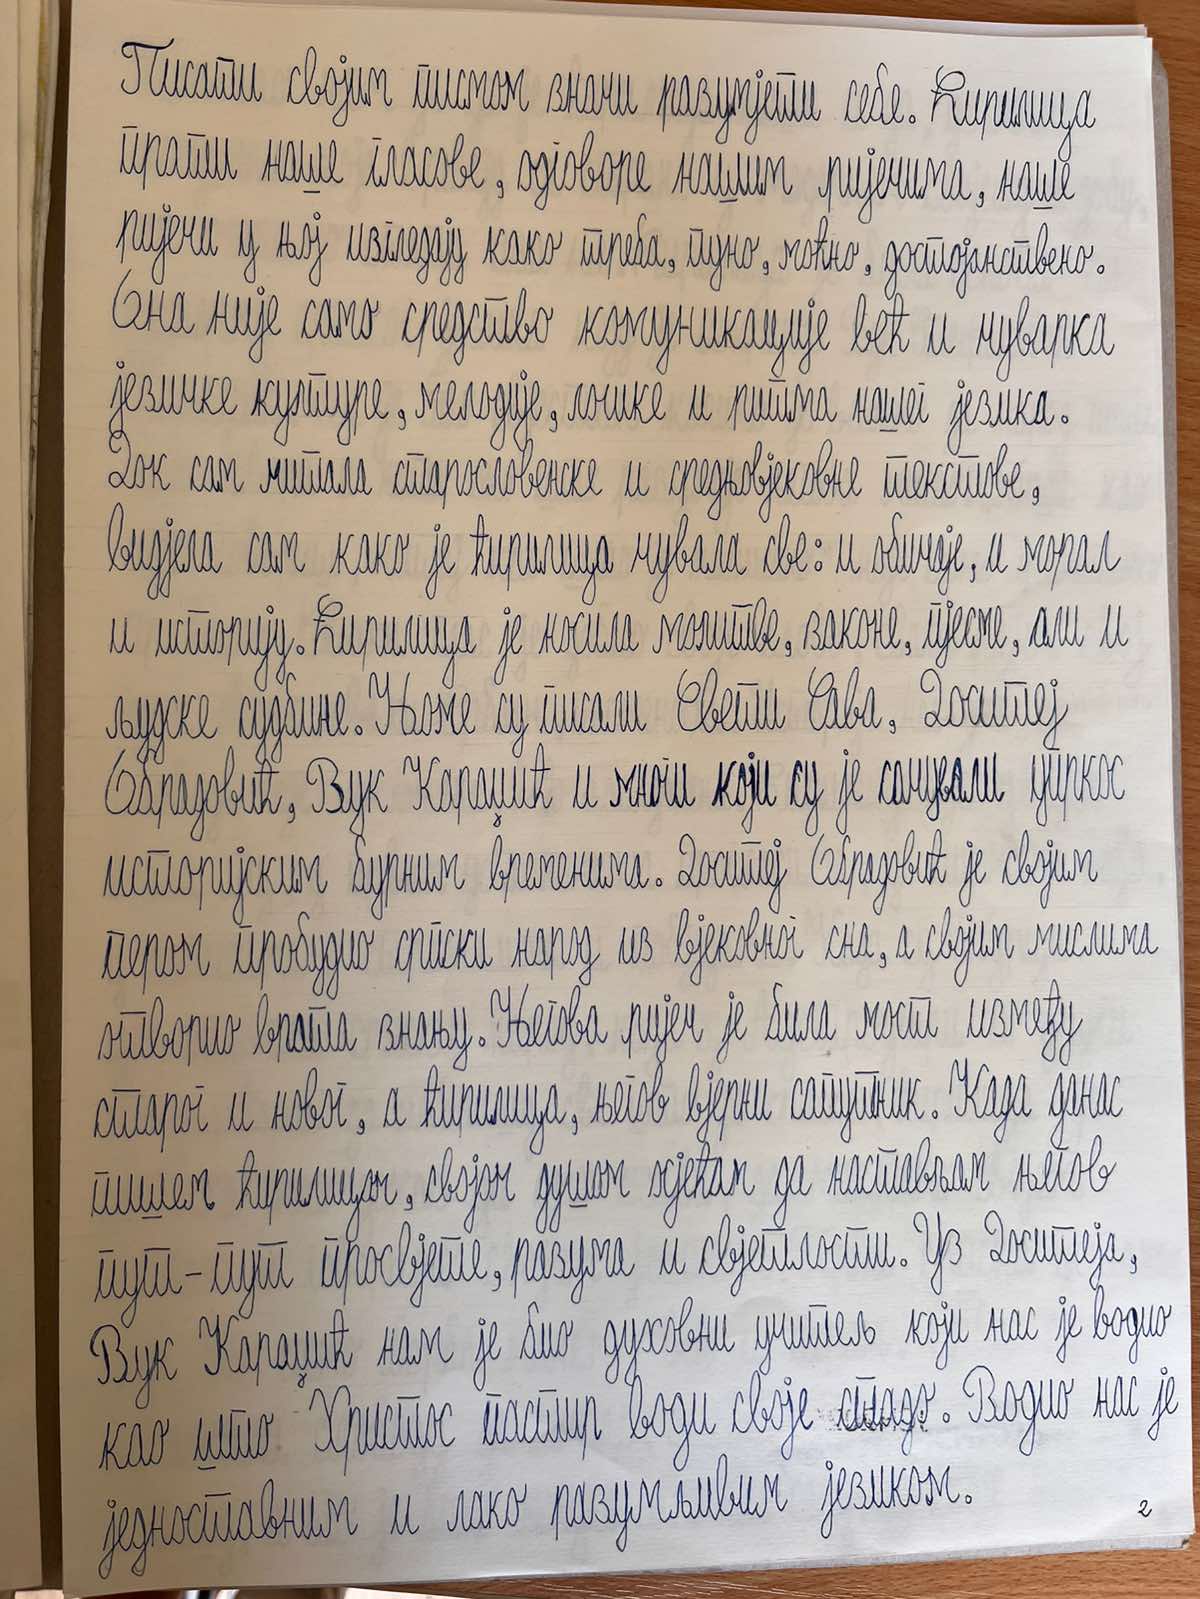 Писати својим писмом значи разумјети себе. Ћирилица
прати наше гласове, одговоре нашим ријечима, наше
ријечи у њој изгледају како треба, пуно, моћно, достојанствено.
Она није само средство комуникације већ и чуварка
језичке културе, мелодије, логике и ритма нашег језика.
Док сам читала старословенске и средњовјековне текстове,
видјела сам како је ћирилица чувала све: и обичаје, и морал
и историју. Ћирилица је носила молитве, законе, пјесме, али и
људске судбине. Њоме су писали Свети Сава, Доситеј
Обрадовић, Вук Караџић и многи који су је сачували упркос
историјским бурним временима. Доситеј Обрадовић је својим
пером пробудио српски народ из вјековног сна, а својим мислима
отворио врата знању. Његова ријеч је била мост између
старог и новог, а ћирилица, његов вјерни сапутник. Када данас
пишем ћирилицом, својом душом осјећам да настављам његов
пут - пут просвјете, разума и свјетлости. Уз Доситеја,
Вук Караџић нам је био духовни учитељ који нас је водио
као што Христос пастир води своје стадо. Водио нас је
једноставним и лако разумљивим језиком.
2